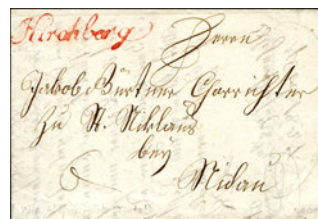 Kirchberg Herrn
Jakob Bürtner Chorrichter
zu St. Niklaus
bey
Nidau